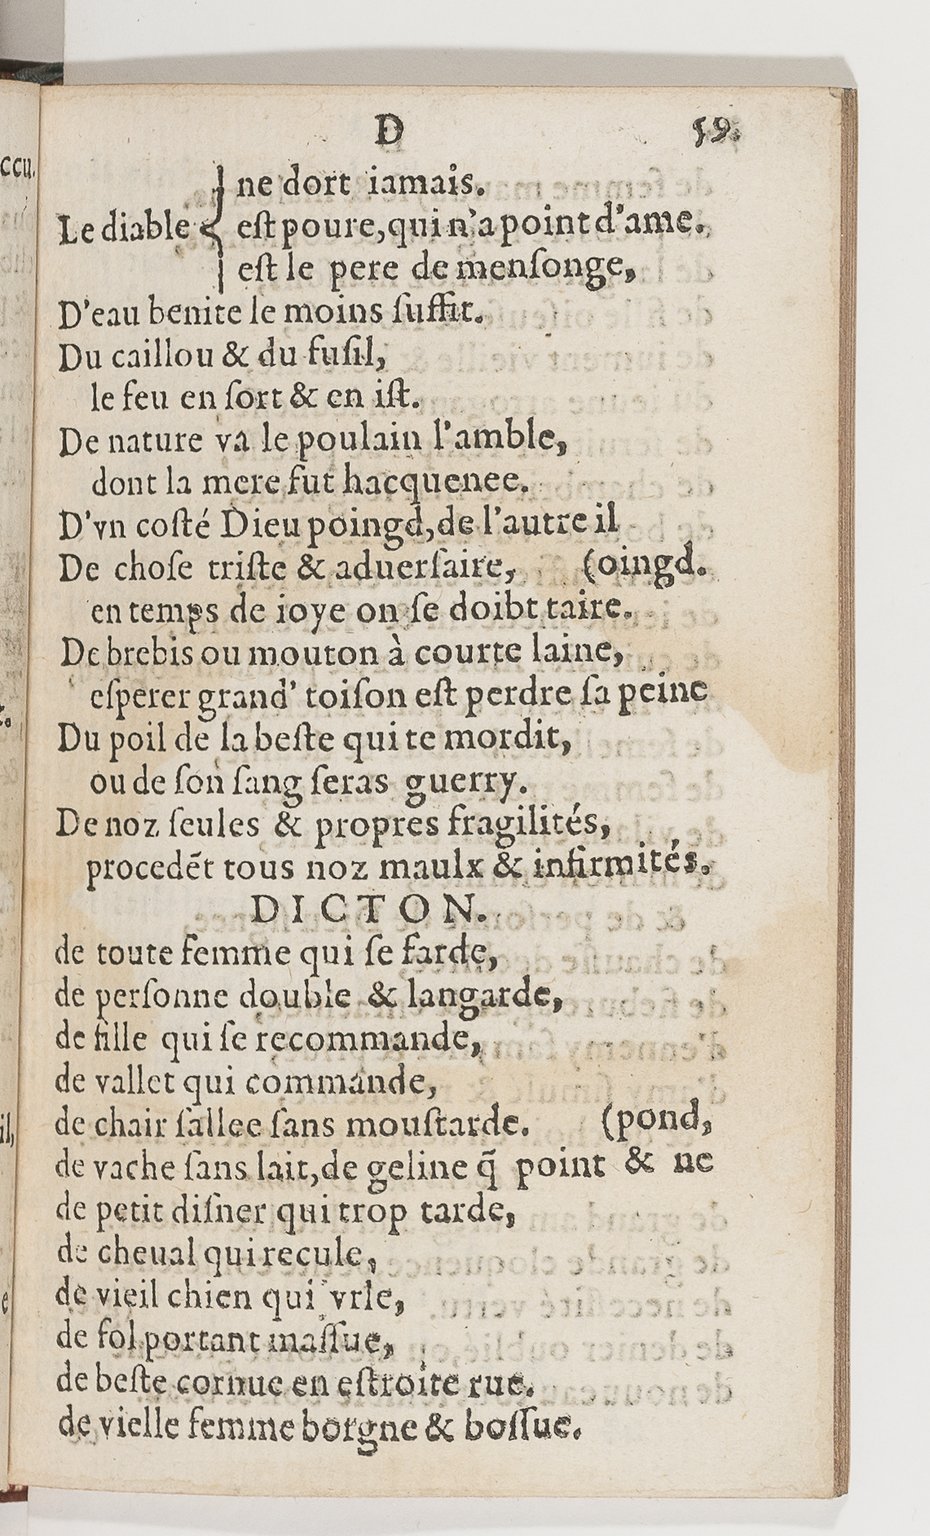 D 59.
ne dort iamais.
Le diable { eſt poure, qui n'a point d'ame.
eſt le pere de menſonge,
D'eau benite le moins ſuffit.
Du caillou & du fuſil,
le feu en ſort & en iſt.
De nature va le poulain l'amble,
dont la mere fut hacquenee.
D'vn coſté Dieu poingd, de l'autre il
De choſe triſte & aduerſaire, (oingd.
en temps de ioye on ſe doibt taire.
De brebis ou mouton à courte laine,
eſperer grand' toiſon eſt perdre ſa peine
Du poil de la beſte qui te mordit,
ou de ſon ſang ſeras guerry.
De noz ſeules & propres fragilités,
procedēt tous noz maulx & infirmités.
DICTON.
de toute femme qui ſe farde,
de perſonne double & langarde,
de fille qui ſe recommande,
de vallet qui commande,
de chair ſallee ſans mouſtarde. (pond,
de vache ſans lait, de geline q̃ point & ne
de petit diſner qui trop tarde,
de cheual qui recule,
de vieil chien qui vrle,
de fol portant maſſue,
de beſte cornue en eſtroite rue.
de vielle femme borgne & boſſue.